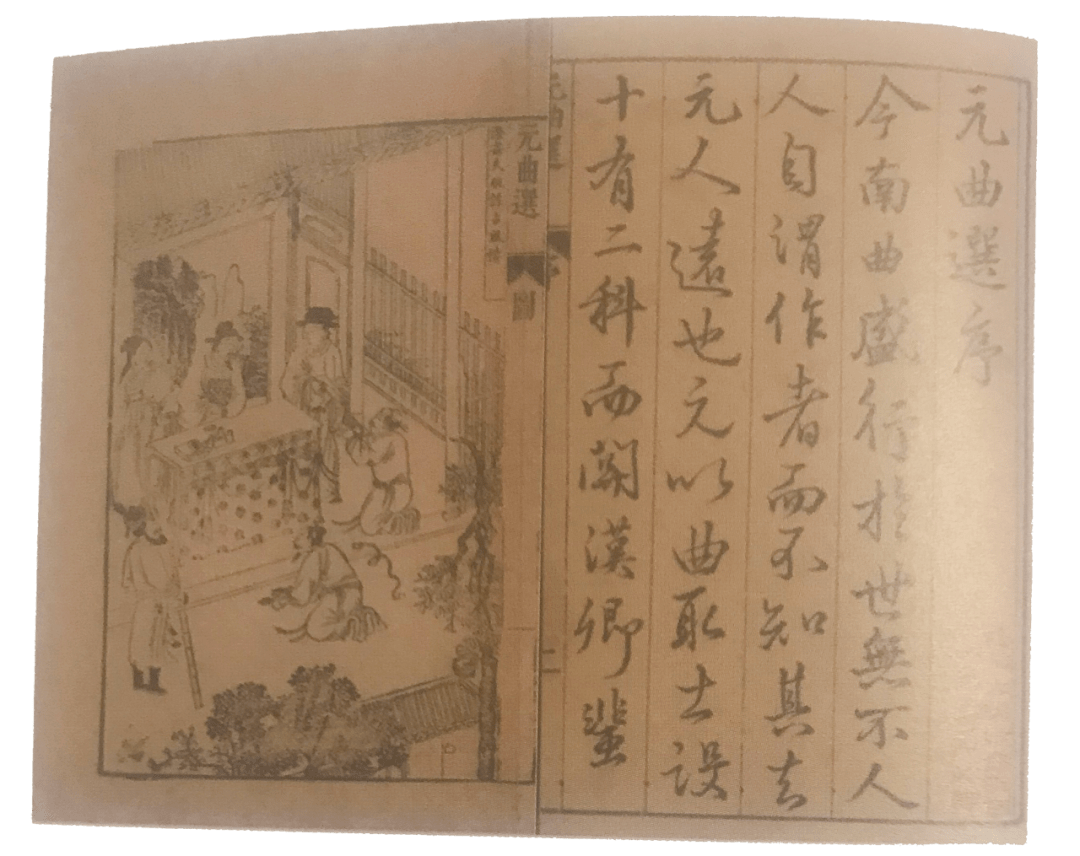 元曲選序
今南曲盛行於世無不人
人自謂作者而不知其去
元人遠也元以曲取士設
十有二科而關漢卿輩
元曲選
元曲選
圖